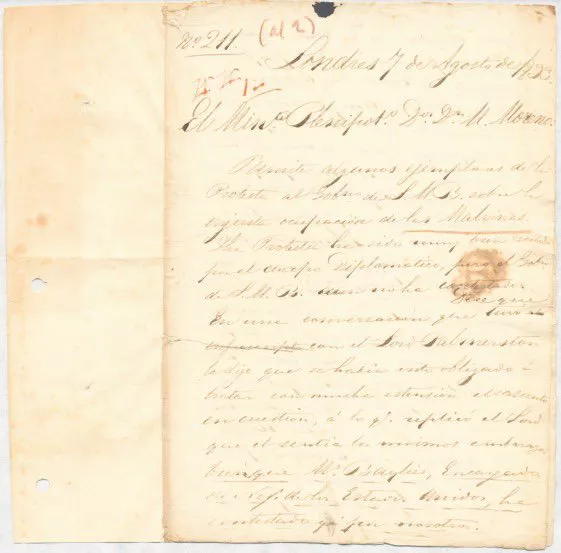 Nº 211. (al 2)
Londres 7 de Agosto de 1833.
El Minº Plenipotº Dr. Dn. M. Moreno.
Remite algunos ejemplares de la
Protesta al Gobno de S. M. B. sobre la
injusta ocupación de las Malvinas.
Tha Protesta ha sido muy bien recibida
por el cuerpo Diplomático, pero el Gobno
de S. M. B. aun no ha contestado.
Dice que
En una conversacion que tuvo el
infrascripto con el Lord Palmerston
le dijo que se había visto obligado á
tratar con mucha estension el asunto
en cuestion, á lo q.e replicó el Lord
que el sentia lo mismo
aunque Mr. Baylies, Encargado
de Neg. de los Estados Unidos, ha
contestado ya por nosotros.